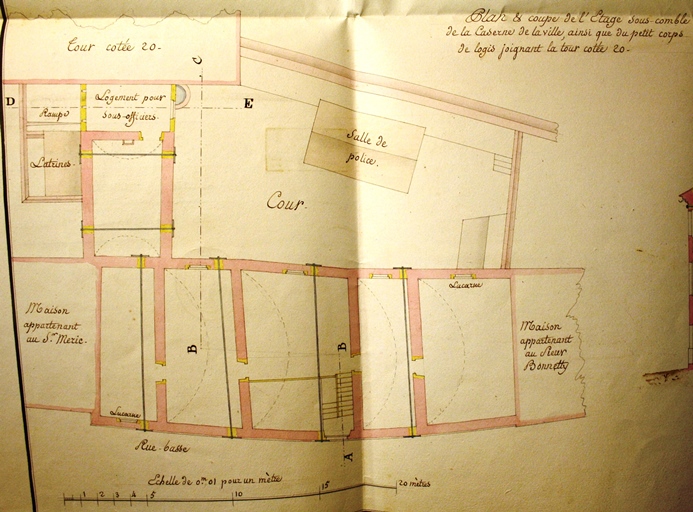 Plan & coupe de l'Etage sous-comble
de la Caserne de la ville, ainsi que du petit corps
de logis joignant la tour cotée 20-
Tour cotée 20-
C
D
E
Logement pour
sous-officiers
Rampe
Latrines
Salle de
police.
Cour.
Lucarne
Maison
appartenant
au Sr. Meric-
B
B
Maison
appartenant
au Sieur
Bonnetty
Lucarne
Rue-basse
A
Echelle de 0m.01 pour un mètre
1 2 3 4 5 10 15 20 mètres